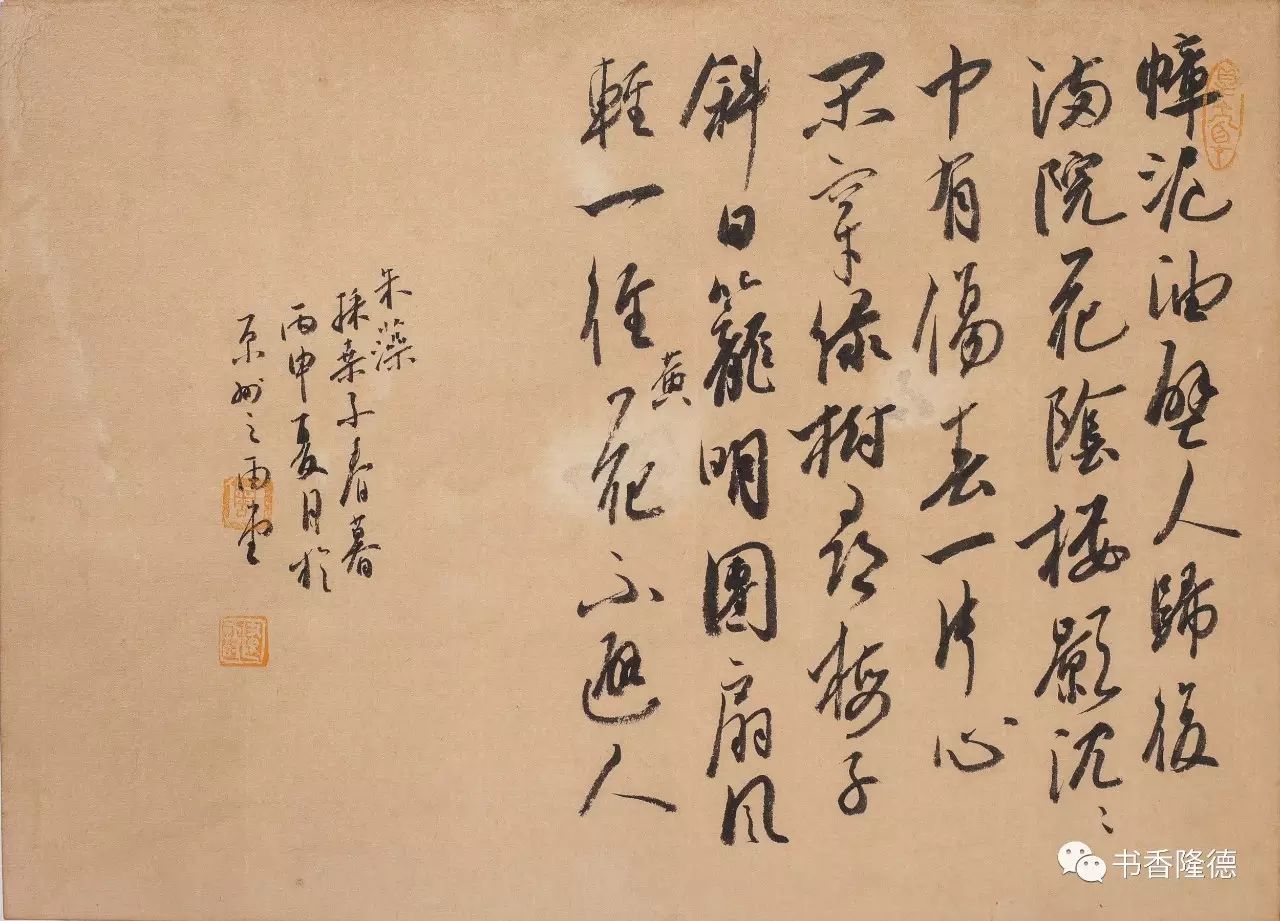 幛泥油壁人歸後
滿院花陰樓影沈〻
中有傷春一片心
閑穿綠樹尋梅子
斜日籠明團扇風
輕一徑黃花不避人
朱藻
採桑子春暮
丙申夏月於
原州之
书香隆德